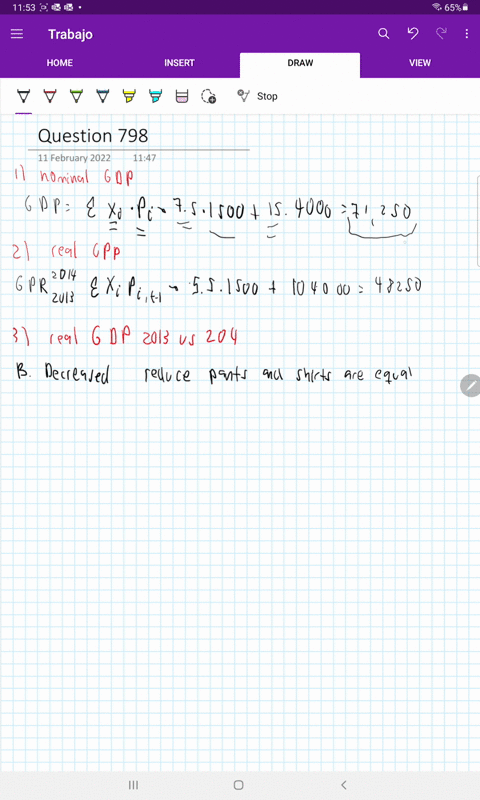 11:53 65%
Trabajo
HOME INSERT DRAW VIEW
Stop
Question 798
11 February 2022 11:47
1) nominal GDP
GDP = Σ Xi · Pi = 7.5 · 1500 + 15 · 4000 = 71,250
2) real GPP
GPR 2014 2013 Σ Xi Pi,t-1 = 5.5 . 1500 + 10 4000 = 48250
3) real GDP 2013 vs 204
B. Decreased reduce pants and shirts are equal